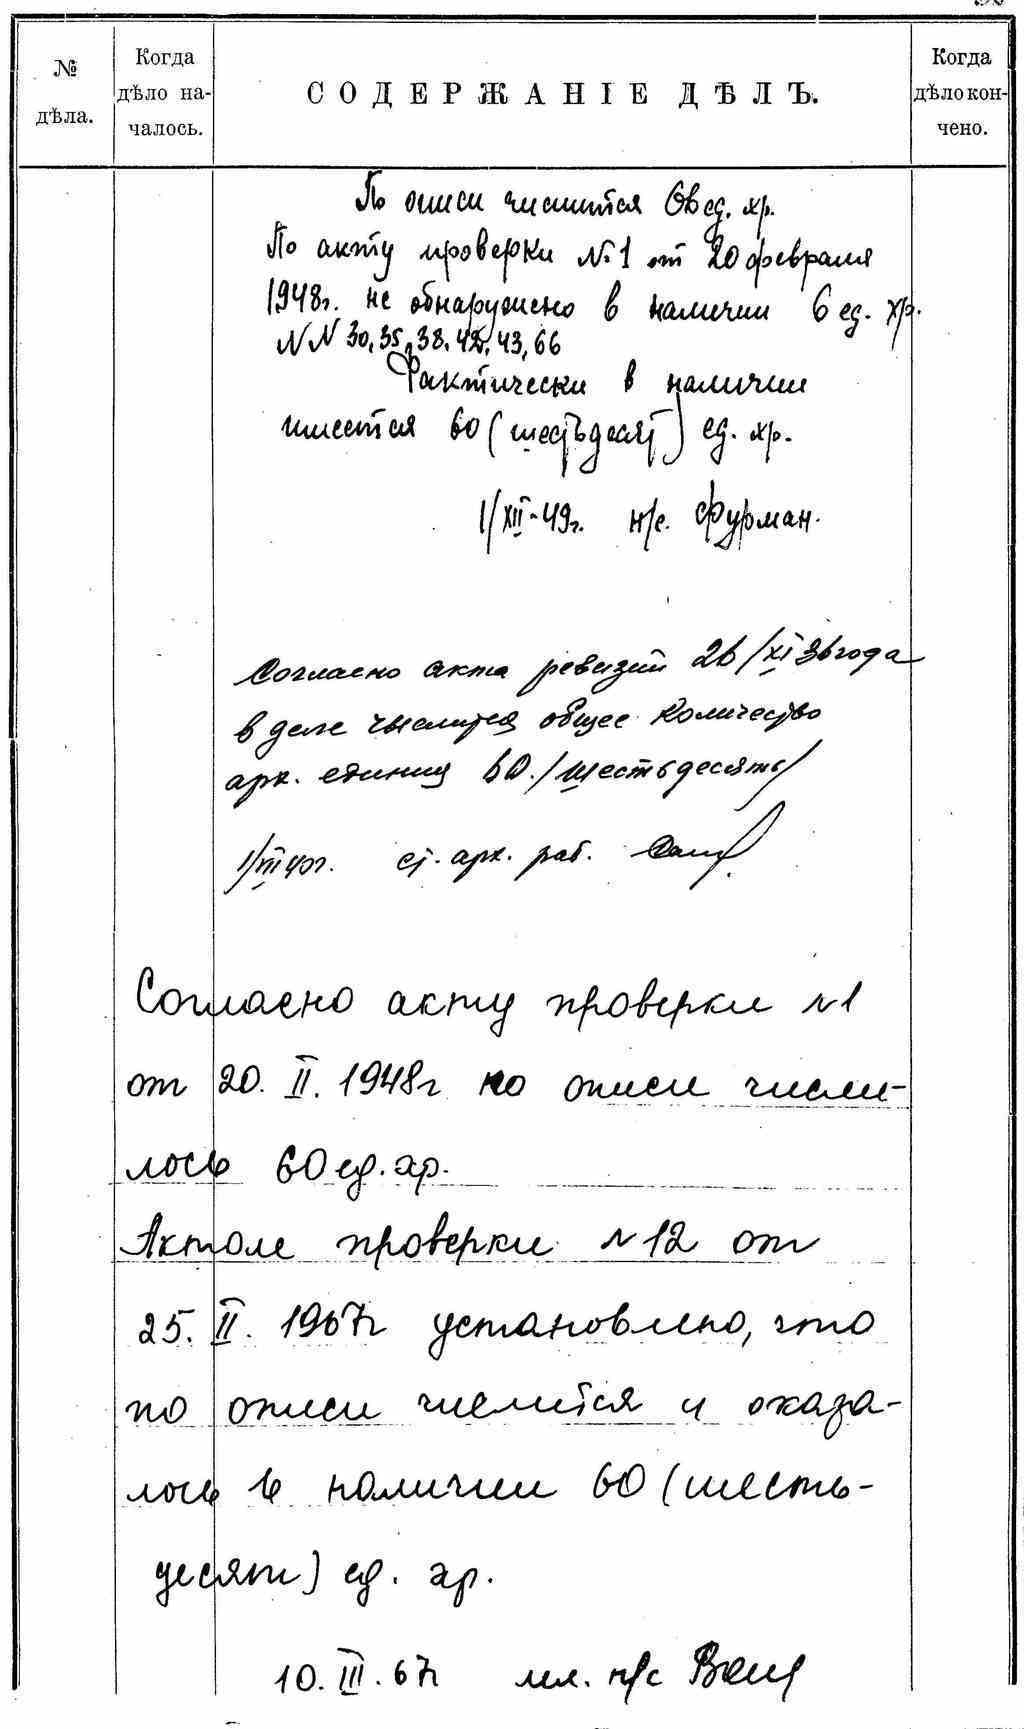 № дѣла.
Когда дѣло на-чалось.
СОДЕРЖАНІЕ ДѢЛЪ.
Когда дѣло кон-чено.
По описи числится ед. хр.
По акту проверки №1 от 20 февраля
1948г. не обнаружено в наличии 6 ед. хр.
NN 30, 35, 38, 42, 43, 66
Фактически в наличии
имеется 60 (шестьдесят) ед. хр.
1/XII-49г. н/с. Фурман.
Согласно акта ревизии 26/XI 36 года
в деле числится общее количество
арх. единиц 60. /шестьдесять/
ст. арх. раб.
Согласно акту проверки №1
от 20. II. 1948г по описи числи-
лось 60 ед. хр.
Актом проверки №12 от
25. II. 1967г установлено, что
по описи числится и оказа-
лось в наличии 60 (шесть-
десят) ед. хр.
10. III. 67г мл. н/с